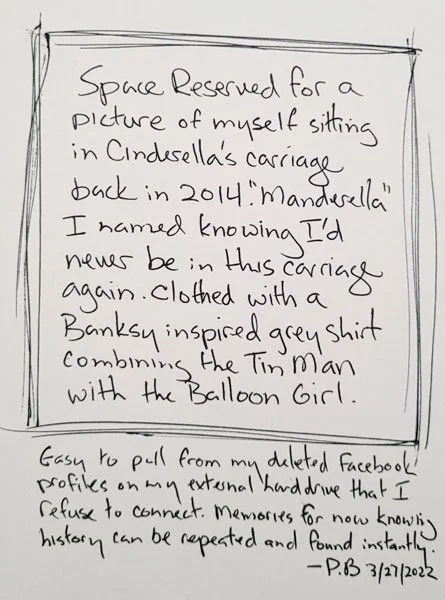 Space Reserved for a
picture of myself sitting
in Cinderella's carriage
back in 2014. "Manderella"
I named knowing I'd
never be in this carriage
again. Clothed with a
Banksy inspired grey shirt
combining the Tin Man
with the Balloon Girl.
Easy to pull from my deleted Facebook
profiles on my external harddrive that I
refuse to connect. Memories for now knowing
history can be repeated and found instantly.
-P.B 3/27/2022